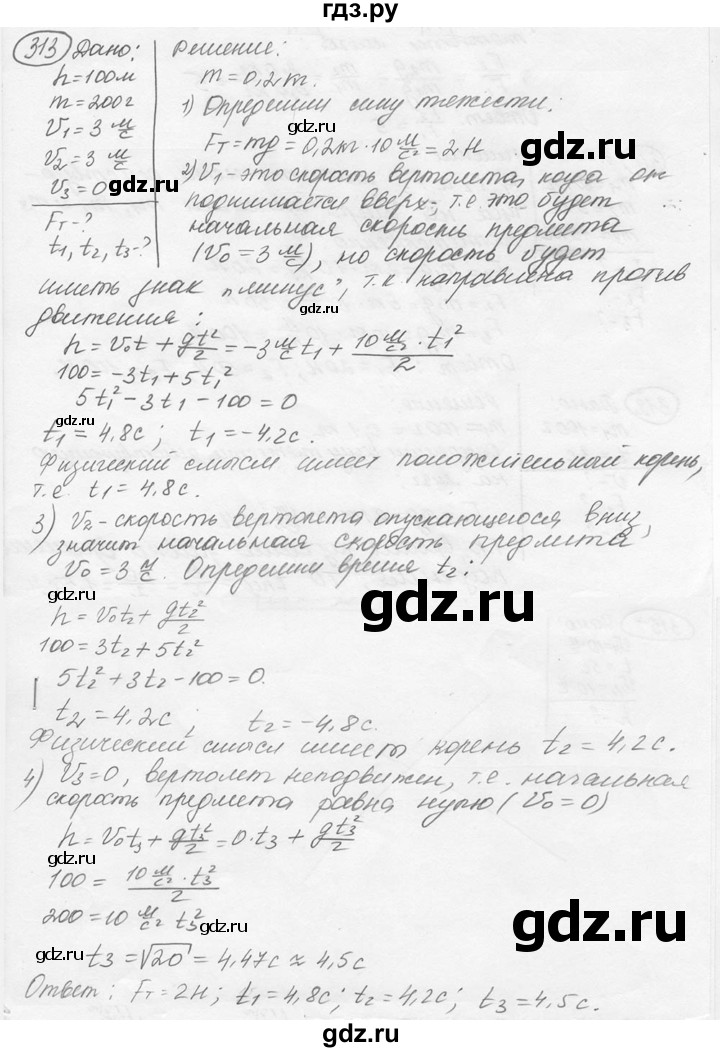 гдз.ру
313 Дано: Решение:
h=100м m=0,2кг.
m=200г 1) Определим силу тяжести:
V1=3 м/с Fт=mg=0,2кг·10 м/с²=2Н
V2=3 м/с 2) V1-это скорость вертолета, когда он
V3=0 поднимается вверх, т.е. это будет
Fт-? начальная скорость предмета
t1, t2, t3-? (V0=3 м/с), но скорость будет
иметь знак „минус", т.к направлена против
движения:
h=V0t+gt²/2=-3 м/с t1+10 м/с²·t1²/2
100=-3t1+5t1²
5t1²-3t1-100=0
t1=4,8с; t1=-4,2с.
Физический смысл имеет положительный корень,
т.е. t1=4,8с.
3) V2-скорость вертолета опускающегося вниз,
значит начальная скорость предмета
V0=3 м/с. Определим время t2:
h=V0t2+gt2²/2
100=3t2+5t2²
5t2²+3t2-100=0.
t2=4,2с; t2=-4,8с.
Физический смысл имеет корень t2=4,2с.
4) V3=0, вертолет неподвижен, т.е. начальная
скорость предмета равна нулю (V0=0)
h=V0t3+gt3²/2=0·t3+gt3²/2
100=10 м/с²·t3²/2
200=10 м/с² t3²
t3=√20=4,47с≈4,5с
Ответ: Fт=2Н; t1=4,8с; t2=4,2с; t3=4,5с.
gdz.ru
gdz.ru
gdz.ru
gdz.ru
gdz.ru
gdz.ru
gdz.ru
gdz.ru
gdz.ru
gdz.ru
gdz.ru
gdz.ru
gdz.ru
gdz.ru
гдз.ру